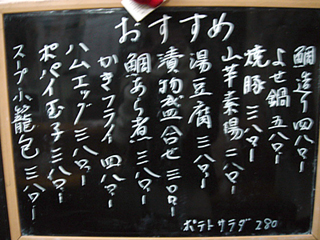 おすすめ
鯛造り 四八〇ー
よせ鍋 五八〇ー
焼豚 三八〇ー
山芋素揚 三八〇ー
湯豆腐 三八〇ー
漬物盛合せ 三八〇ー
鯛あら煮 三八〇ー
かきフライ 四八〇ー
ハムエッグ 三八〇ー
ポパイ玉子 三八〇ー
スープ小籠包 三八〇ー
ポテトサラダ 280